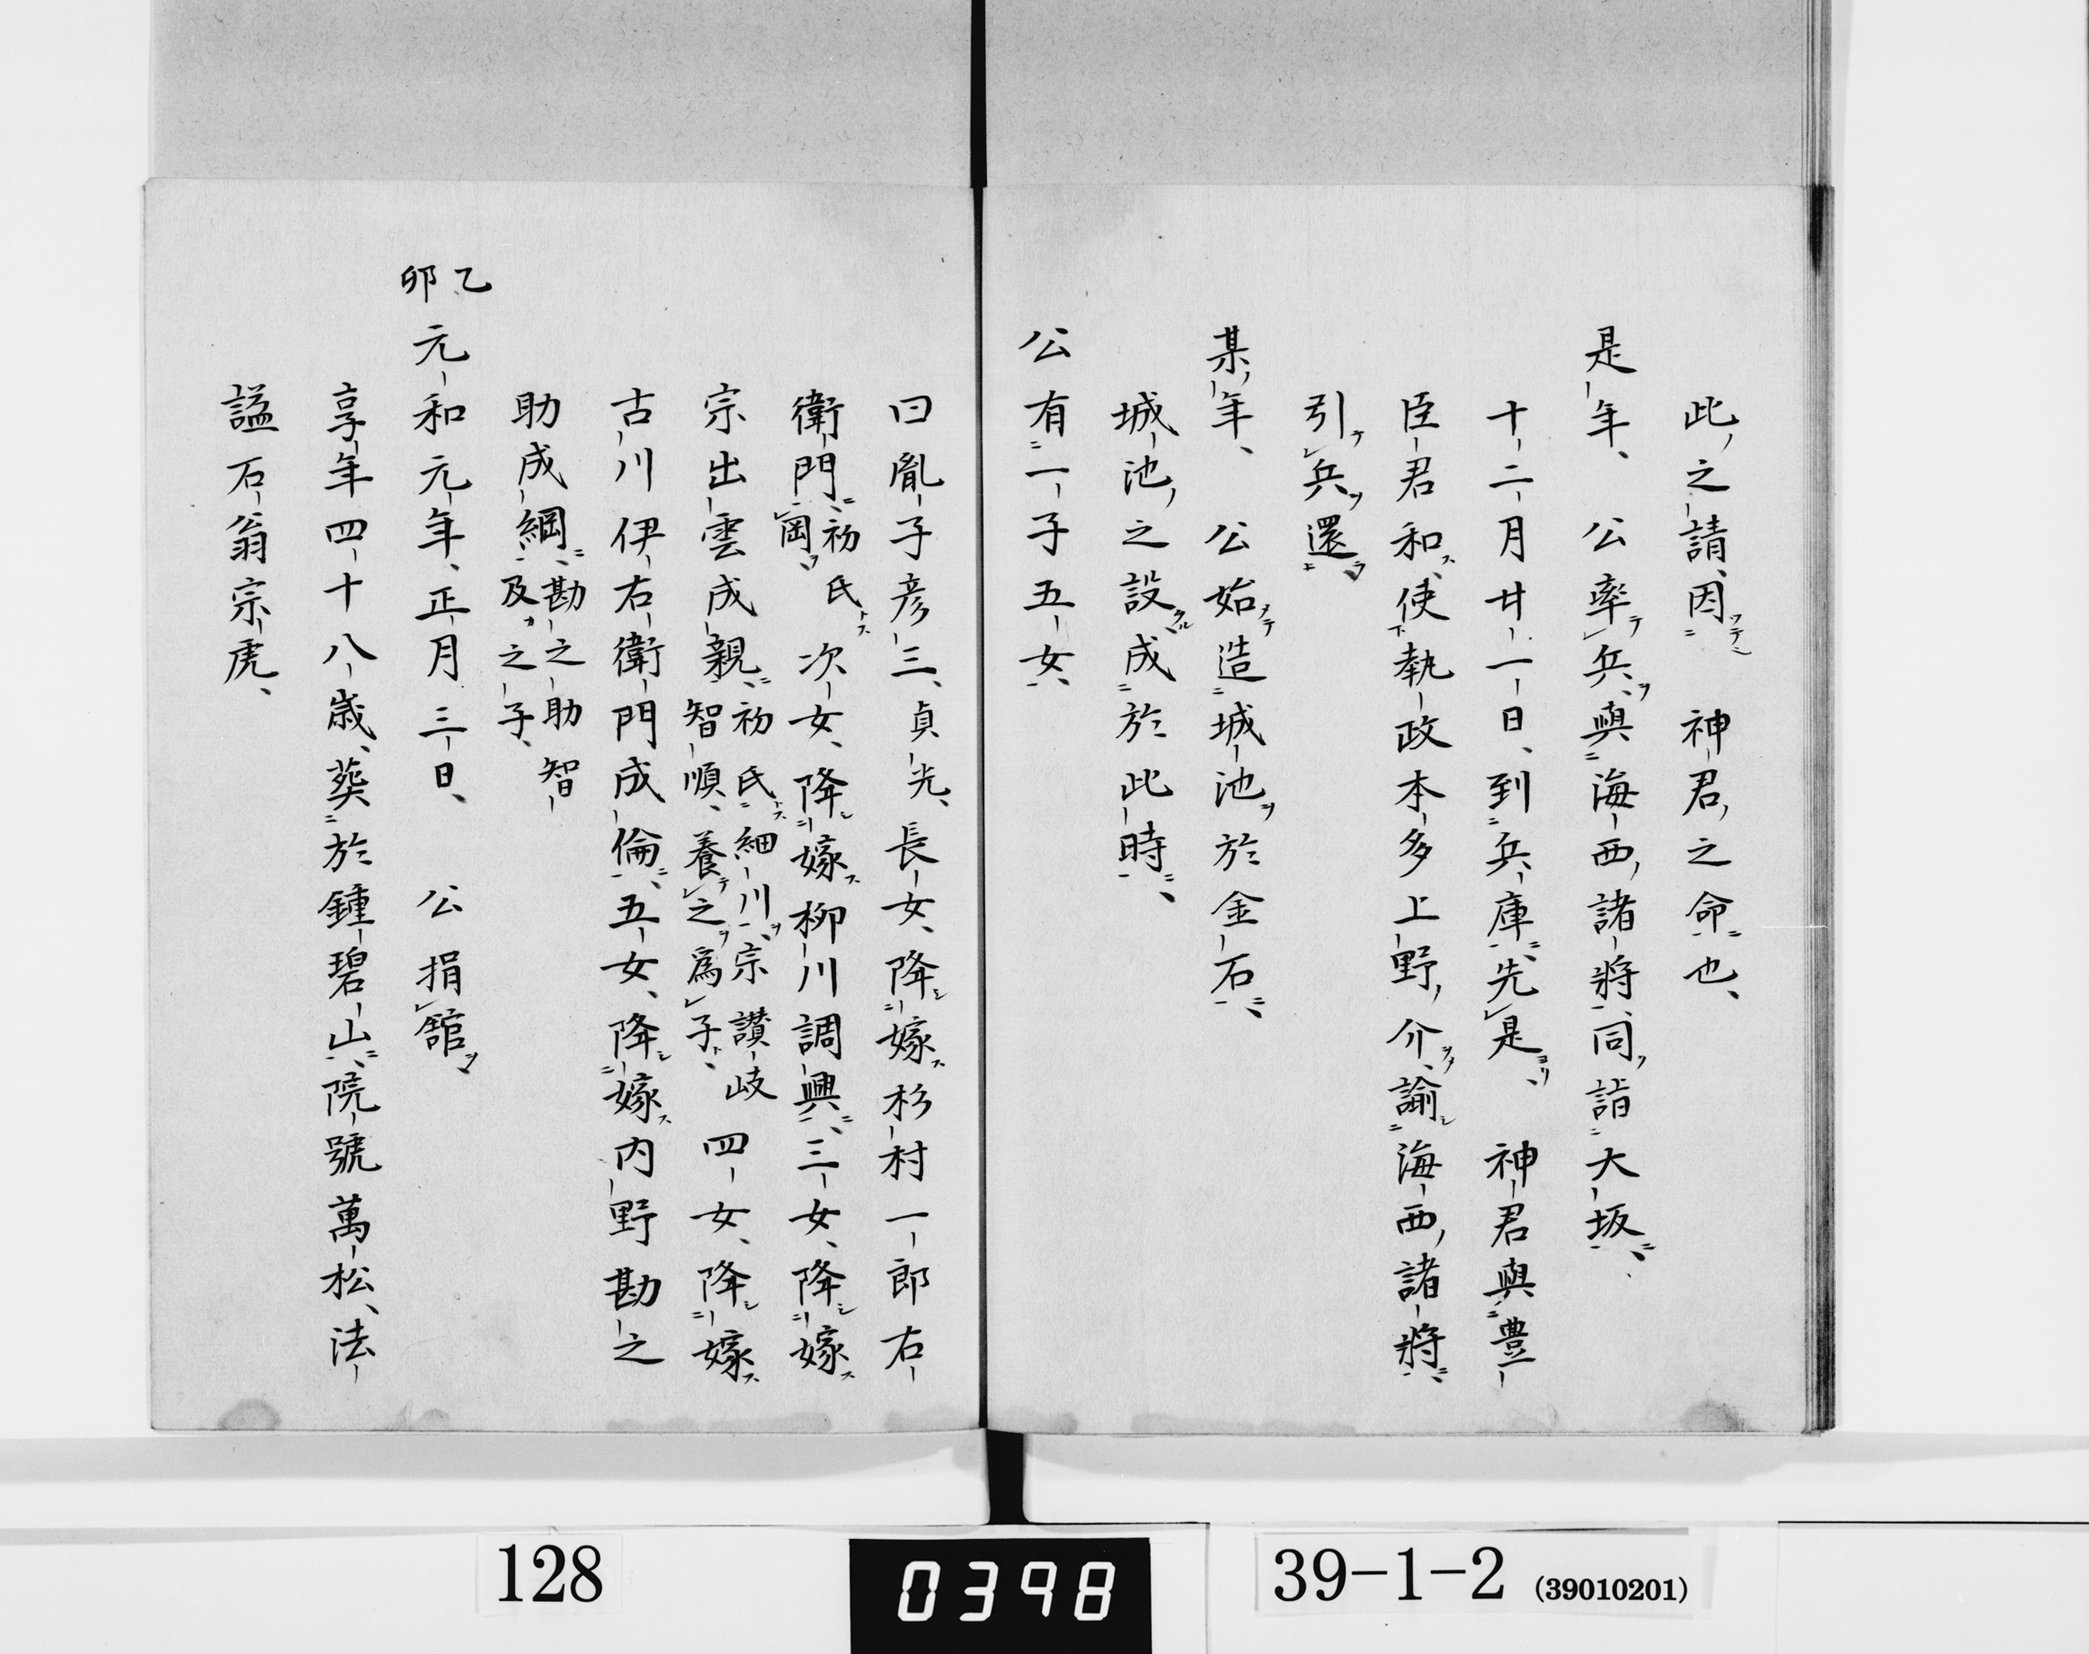 此之請因　神君之命也、
是年、　公率兵、與海西諸將、同詣大坂、
十二月廿一日、到兵庫、先是、　神君與豊
臣君和、使執政本多上野介、諭海西諸將、
引兵還
某年、　公始造城池於金石、
城池之設成於此時、
公有一子五女、
曰胤子彦三、貞光、長女、降嫁杉村一郎右
衛門、初氏岡、次女、降嫁柳川調興、三女、降嫁
宗出雲成親、初氏細川、宗讃岐智順、養之爲子、四女、降嫁
古川伊右衛門成倫、五女、降嫁内野勘之
助成綱、勘之助智及之子、
乙卯
元和元年、正月三日、　公捐舘、
享年四十八歳、葬於鍾碧山、院號萬松、法
諡石翁宗虎、
128
0398
39-1-2 (39010201)